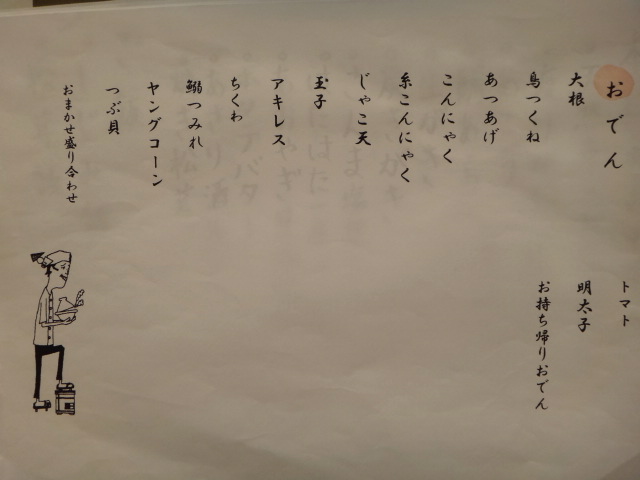 おでん
大根
鳥つくね
あつあげ
こんにゃく
糸こんにゃく
じゃこ天
玉子
アキレス
ちくわ
鰯つみれ
ヤングコーン
つぶ貝
おまかせ盛り合わせ
トマト
明太子
お持ち帰りおでん